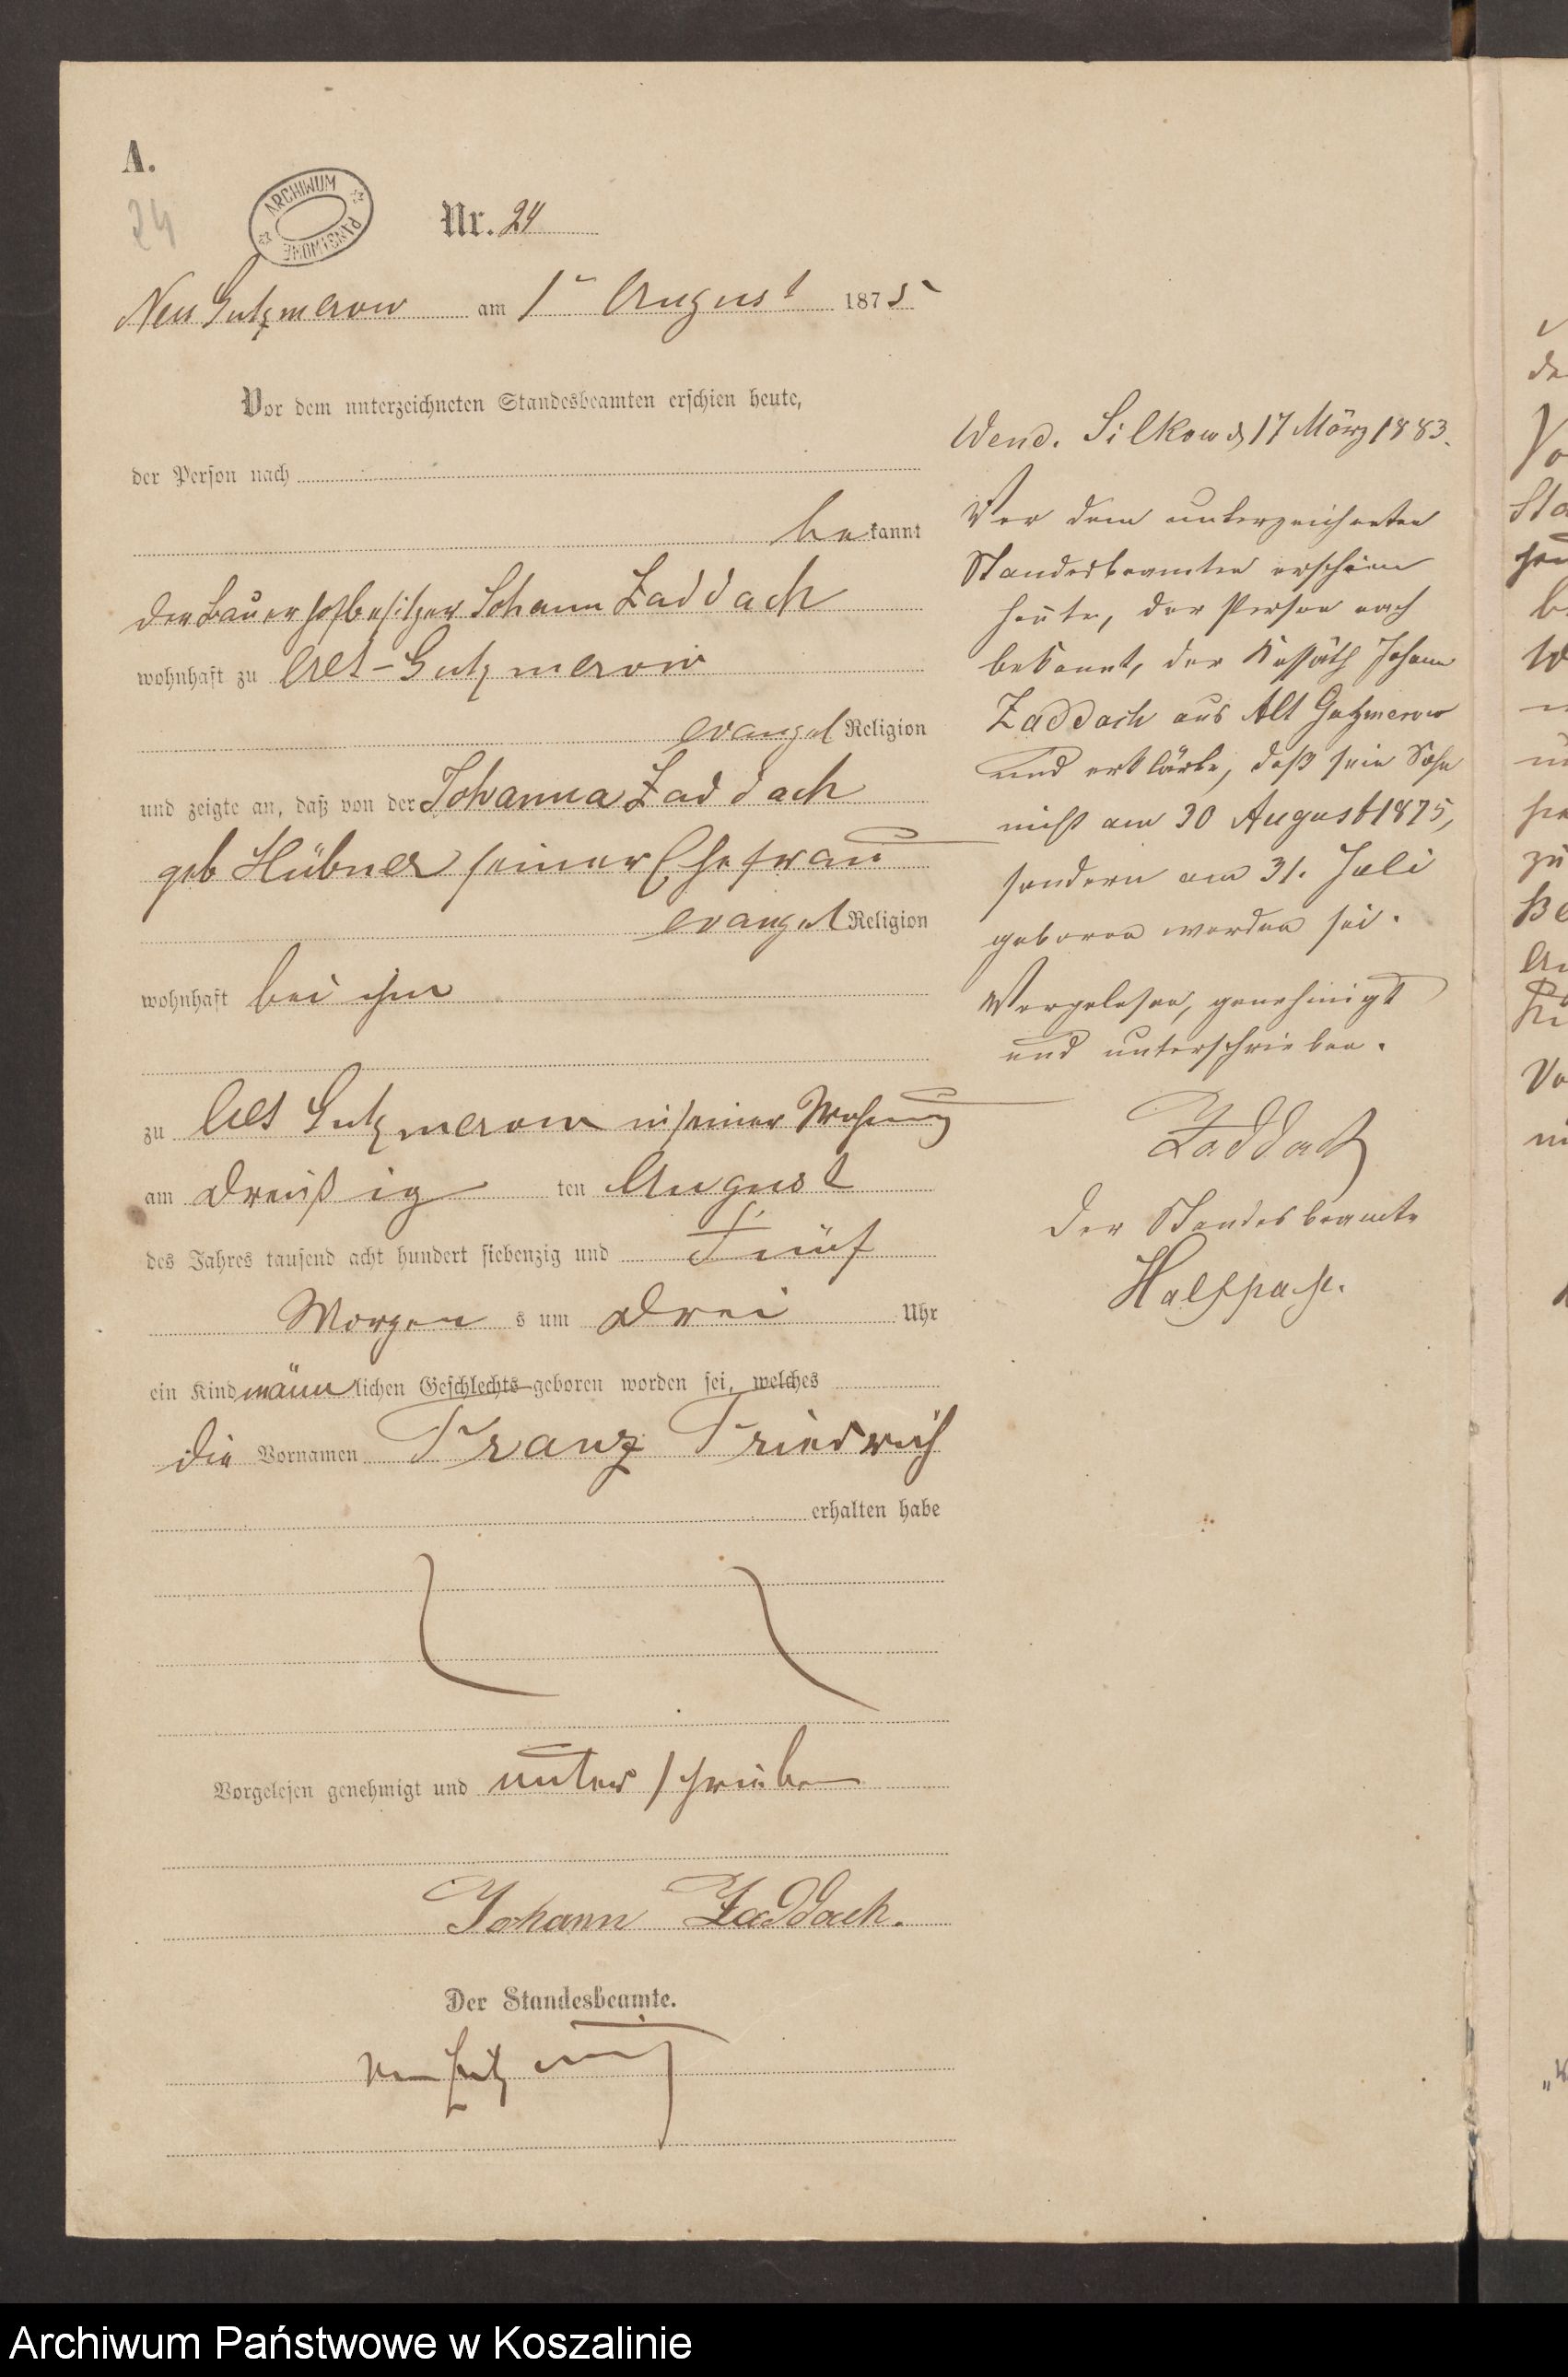 A.
24
ARCHIWUM PAŃSTWOWE
Nr. 24
Neu Gutzmerow am 1 August 1875
Vor dem unterzeichneten Standesbeamten erschien heute,
der Person nach
bekannt
der Bauerhofbesitzer Johann Zaddach
wohnhaft zu Alt-Gutzmerow
evangel Religion
und zeigte an, daß von der Johanna Zaddach
geb Hübner seiner Ehefrau
evangel Religion
wohnhaft bei ihm
zu Alt Gutzmerow in seiner Wohnung
am dreißig ten August
des Jahres tausend acht hundert siebenzig und Fünf
Morgen s um drei Uhr
ein Kind männlichen Geschlechts geboren worden sei, welches
die Vornamen Franz Friedrich
erhalten habe
Vorgelesen genehmigt und unterschrieben
Johann Zaddach.
Der Standesbeamte.
Wend. Silkow d 17 März 1883.
Vor dem unterzeichneten
Standesbeamten erschien
heute, der Person nach
bekannt, der Kossäth Johann
Zaddach aus Alt Gutzmerow
und erklärte, daß sein Sohn
nicht am 30 August 1875,
sondern am 31. Juli
geboren worden sei.
Vorgelesen, genehmigt
und unterschrieben.
Zaddach
Der Standesbeamte
Halfpap.
Archiwum Państwowe w Koszalinie